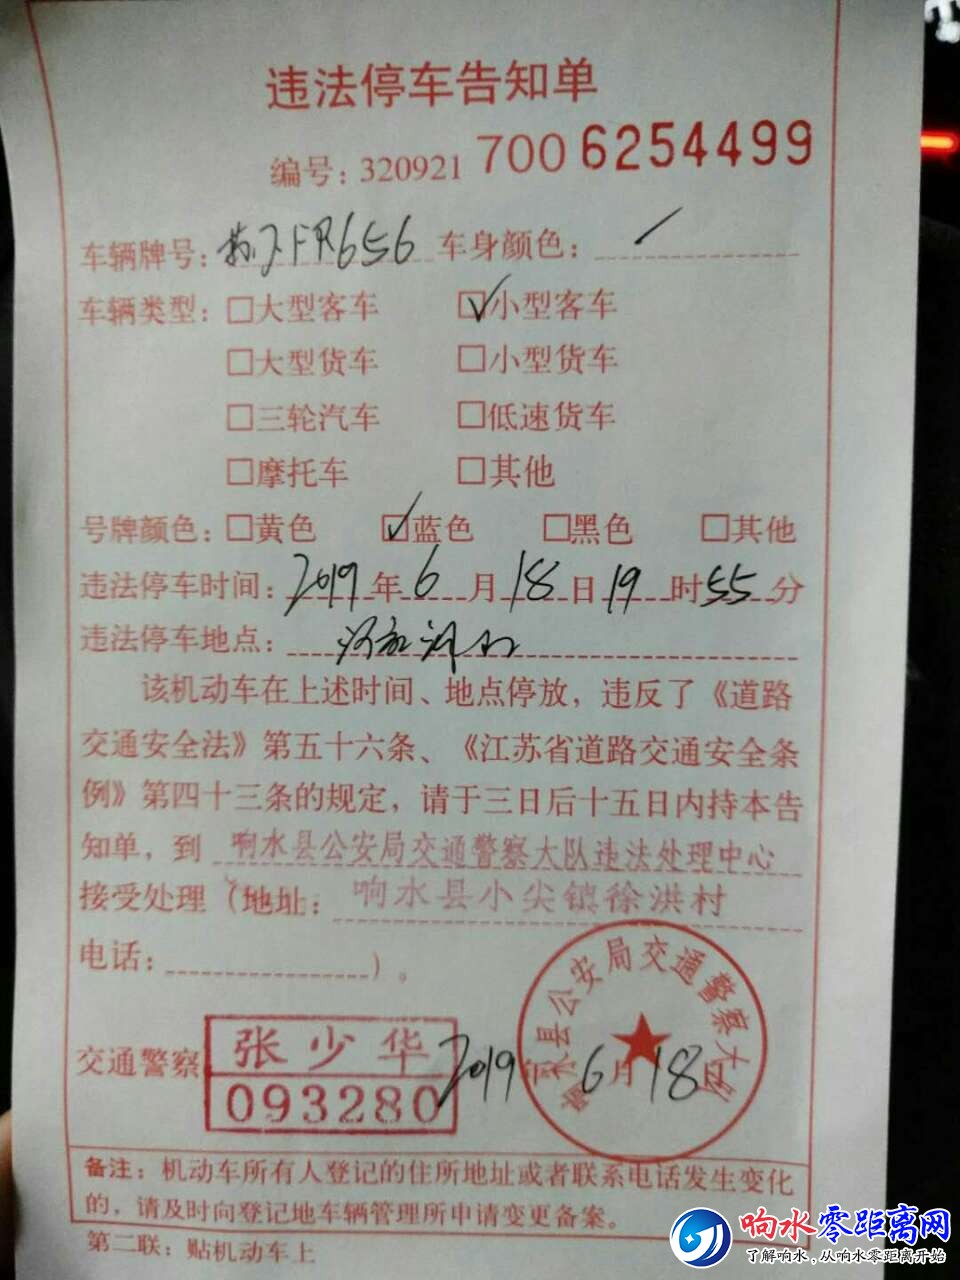 违法停车告知单
编号：320921 700 6254499
车辆牌号：苏JFR656 车身颜色：
车辆类型：□大型客车 ☑小型客车
□大型货车 □小型货车
□三轮汽车 □低速货车
□摩托车 □其他
号牌颜色：□黄色 ☑蓝色 □黑色 □其他
违法停车时间：2019年6月18日19时55分
违法停车地点：
该机动车在上述时间、地点停放，违反了《道路
交通安全法》第五十六条、《江苏省道路交通安全条
例》第四十三条的规定，请于三日后十五日内持本告
知单，到 响水县公安局交通警察大队违法处理中心
接受处理（地址：响水县小尖镇徐洪村
电话：）。
响水县公安局交通警察大队
交通警察 张少华 2019 6月18
093280
备注：机动车所有人登记的住所地址或者联系电话发生变化
的，请及时向登记地车辆管理所申请变更备案。
第二联：贴机动车上
响水零距离网
了解响水，从响水零距离开始